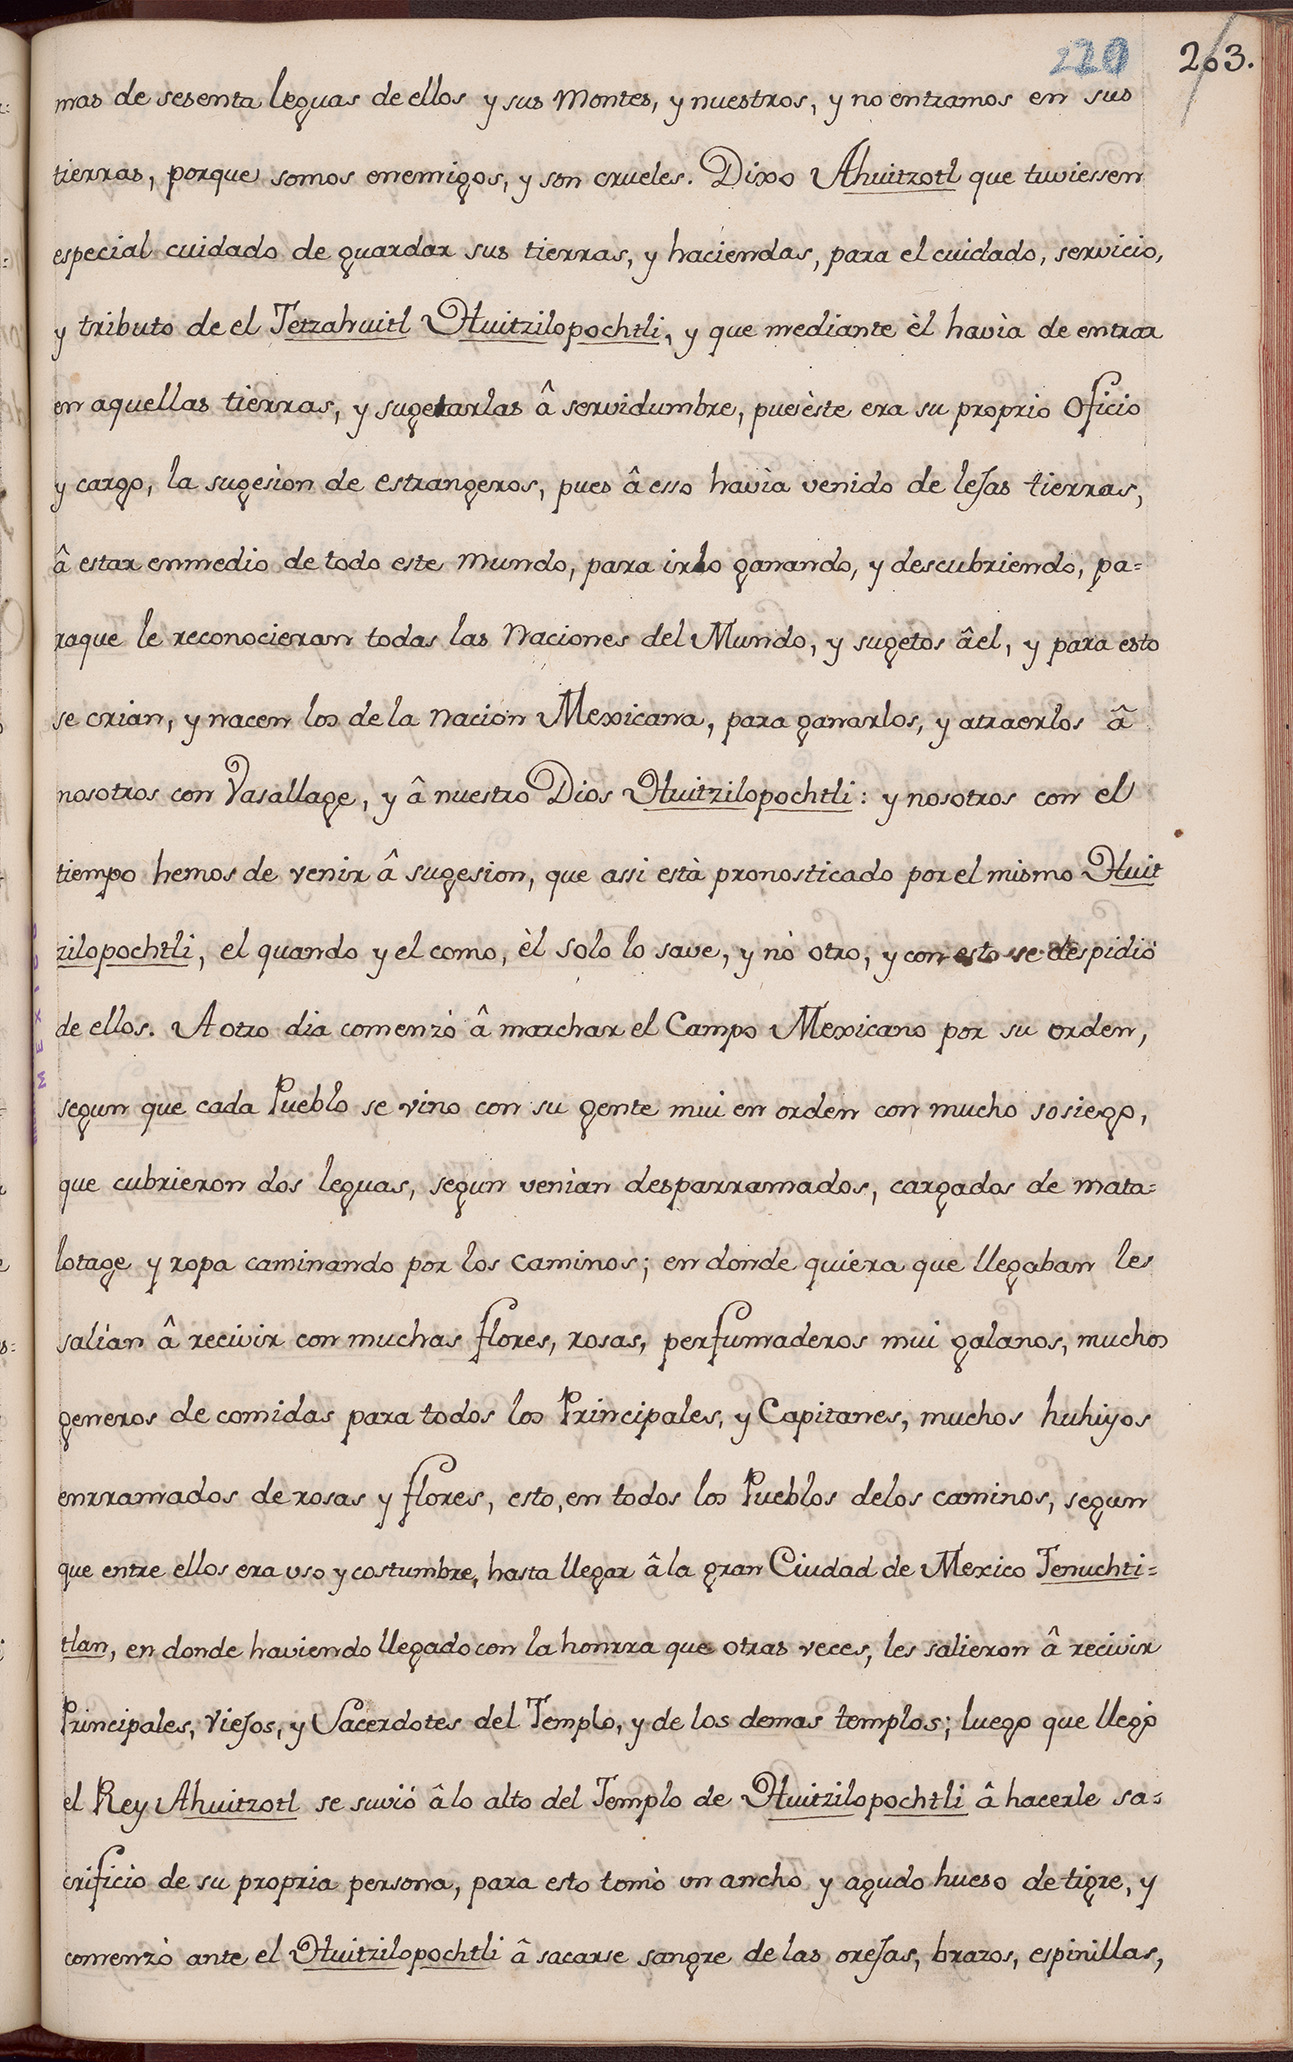 220 263.
mas de sesenta leguas de ellos y sus Montes, y nuestros, y no entramos en sus
tierras, porque somos enemigos, y son crueles. Dixo Ahuitzotl que tuviessen
especial cuidado de guardar sus tierras, y haciendas, para el cuidado, servicio,
y tributo de el Tetzahuitl Huitzilopochtli, y que mediante èl havìa de entrar
en aquellas tierras, y sugetarlas â servidumbre, pues èste era su proprio Oficio
y cargo, la sugesion de estrangeros, pues â esso havìa venido de lejas tierras,
â estar enmedio de todo este Mundo, para irlo ganando, y descubriendo, pa=
raque le reconocieran todas las Naciones del Mundo, y sugetos âel, y para esto
se crian, y nacen los de la Nacion Mexicana, para ganarlos, y atraerlos â
nosotros con Vasallage, y â nuestro Dios Huitzilopochtli: y nosotros con el
tiempo hemos de venir â sugesion, que assi està pronosticado por el mismo Huit
zilopochtli, el quando y el como, èl solo lo save, y nò otro; y con esto se despidiò
de ellos. A otro dia comenzò â marchar el Campo Mexicano por su orden,
segun que cada Pueblo se vino con su gente mui en orden con mucho sosiego,
que cubrieron dos leguas, segun venìan desparramados, cargados de mata=
lotage y ropa caminando por los caminos; en donde quiera que llegaban les
salìan â recivir con muchas flores, rosas, perfumaderos mui galanos, muchos
generos de comidas para todos los Principales, y Capitanes, muchos huhiyos
enrramados de rosas y flores, esto, en todos los Pueblos delos caminos, segun
que entre ellos era uso y costumbre, hasta llegar â la gran Ciudad de Mexico Tenuchti=
tlan, en donde haviendo llegado con la honrra que otras veces, les salieron â recivir
Principales, Viejos, y Sacerdotes del Templo, y de los demas templos; luego que llegò
el Rey Ahuitzotl se suviò â lo alto del Templo de Huitzilopochtli â hacerle sa=
crificio de su propria persona, para esto tomò un ancho y agudo hueso de tigre, y
comenzò ante el Huitzilopochtli â sacarse sangre de las orejas, brazos, espinillas,